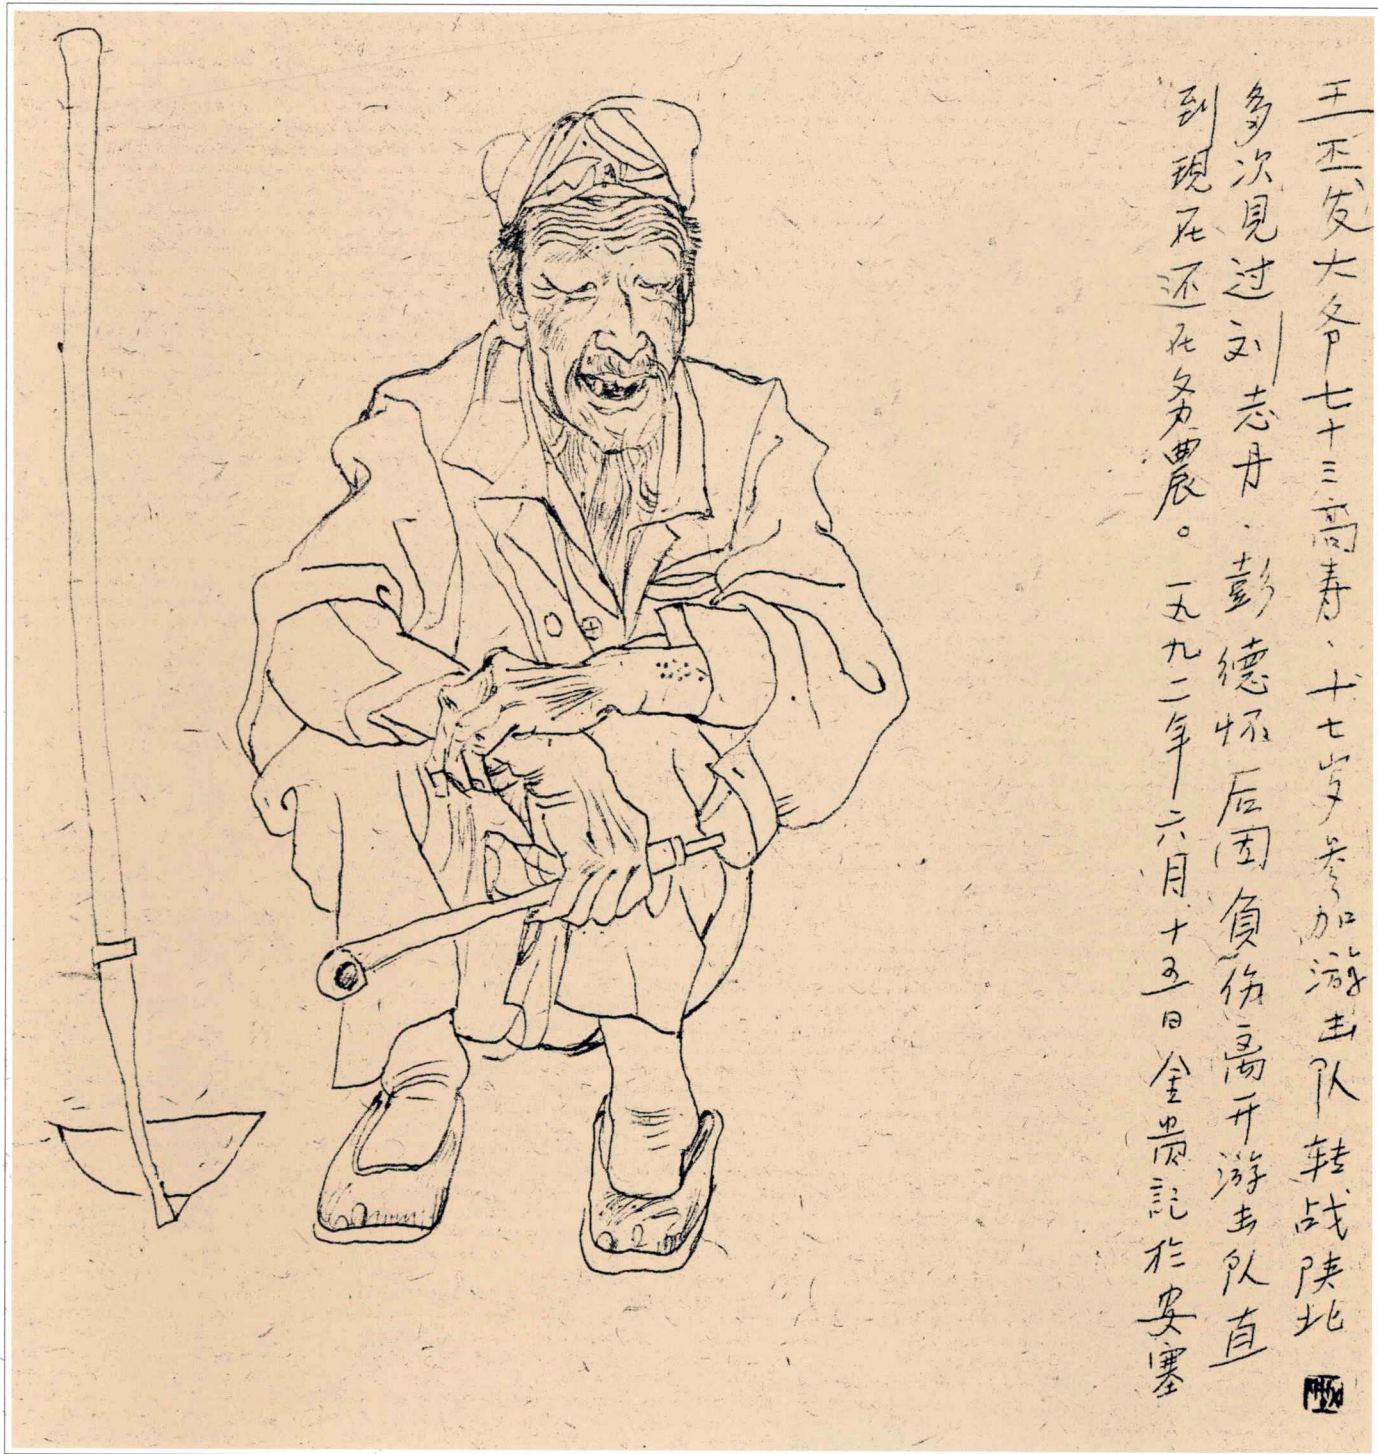 王丕发大爷七十三高寿、十七岁参加游击队转战陕北
多次見过刘志丹·彭德怀后因負伤离开游击队直
到現在还在务農。一九九二年六月十五日金贵記於安塞